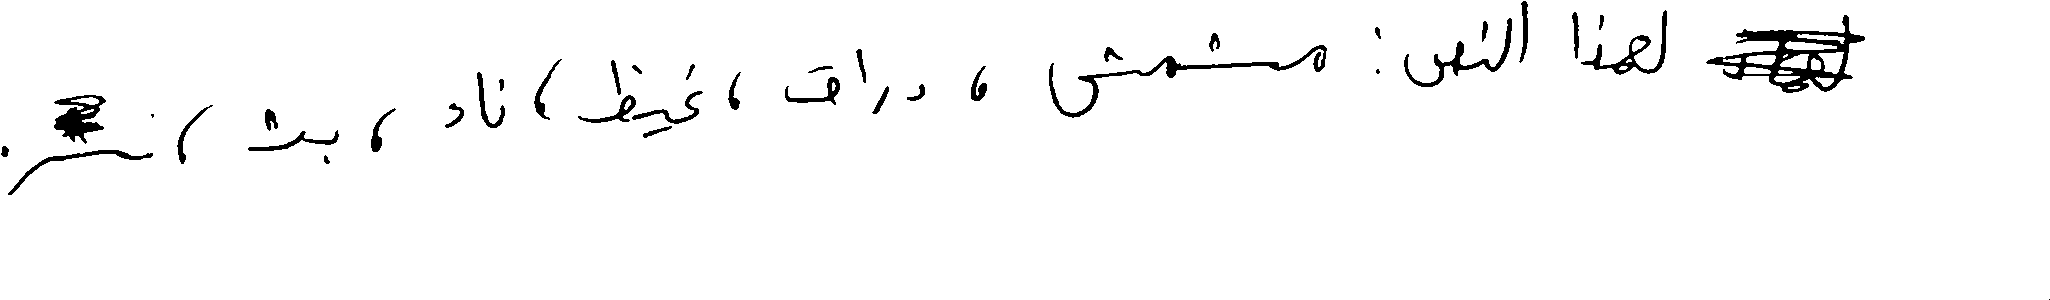 لهذا النص: مشمش، دراق، غيظ، ناد، بث، نسر.